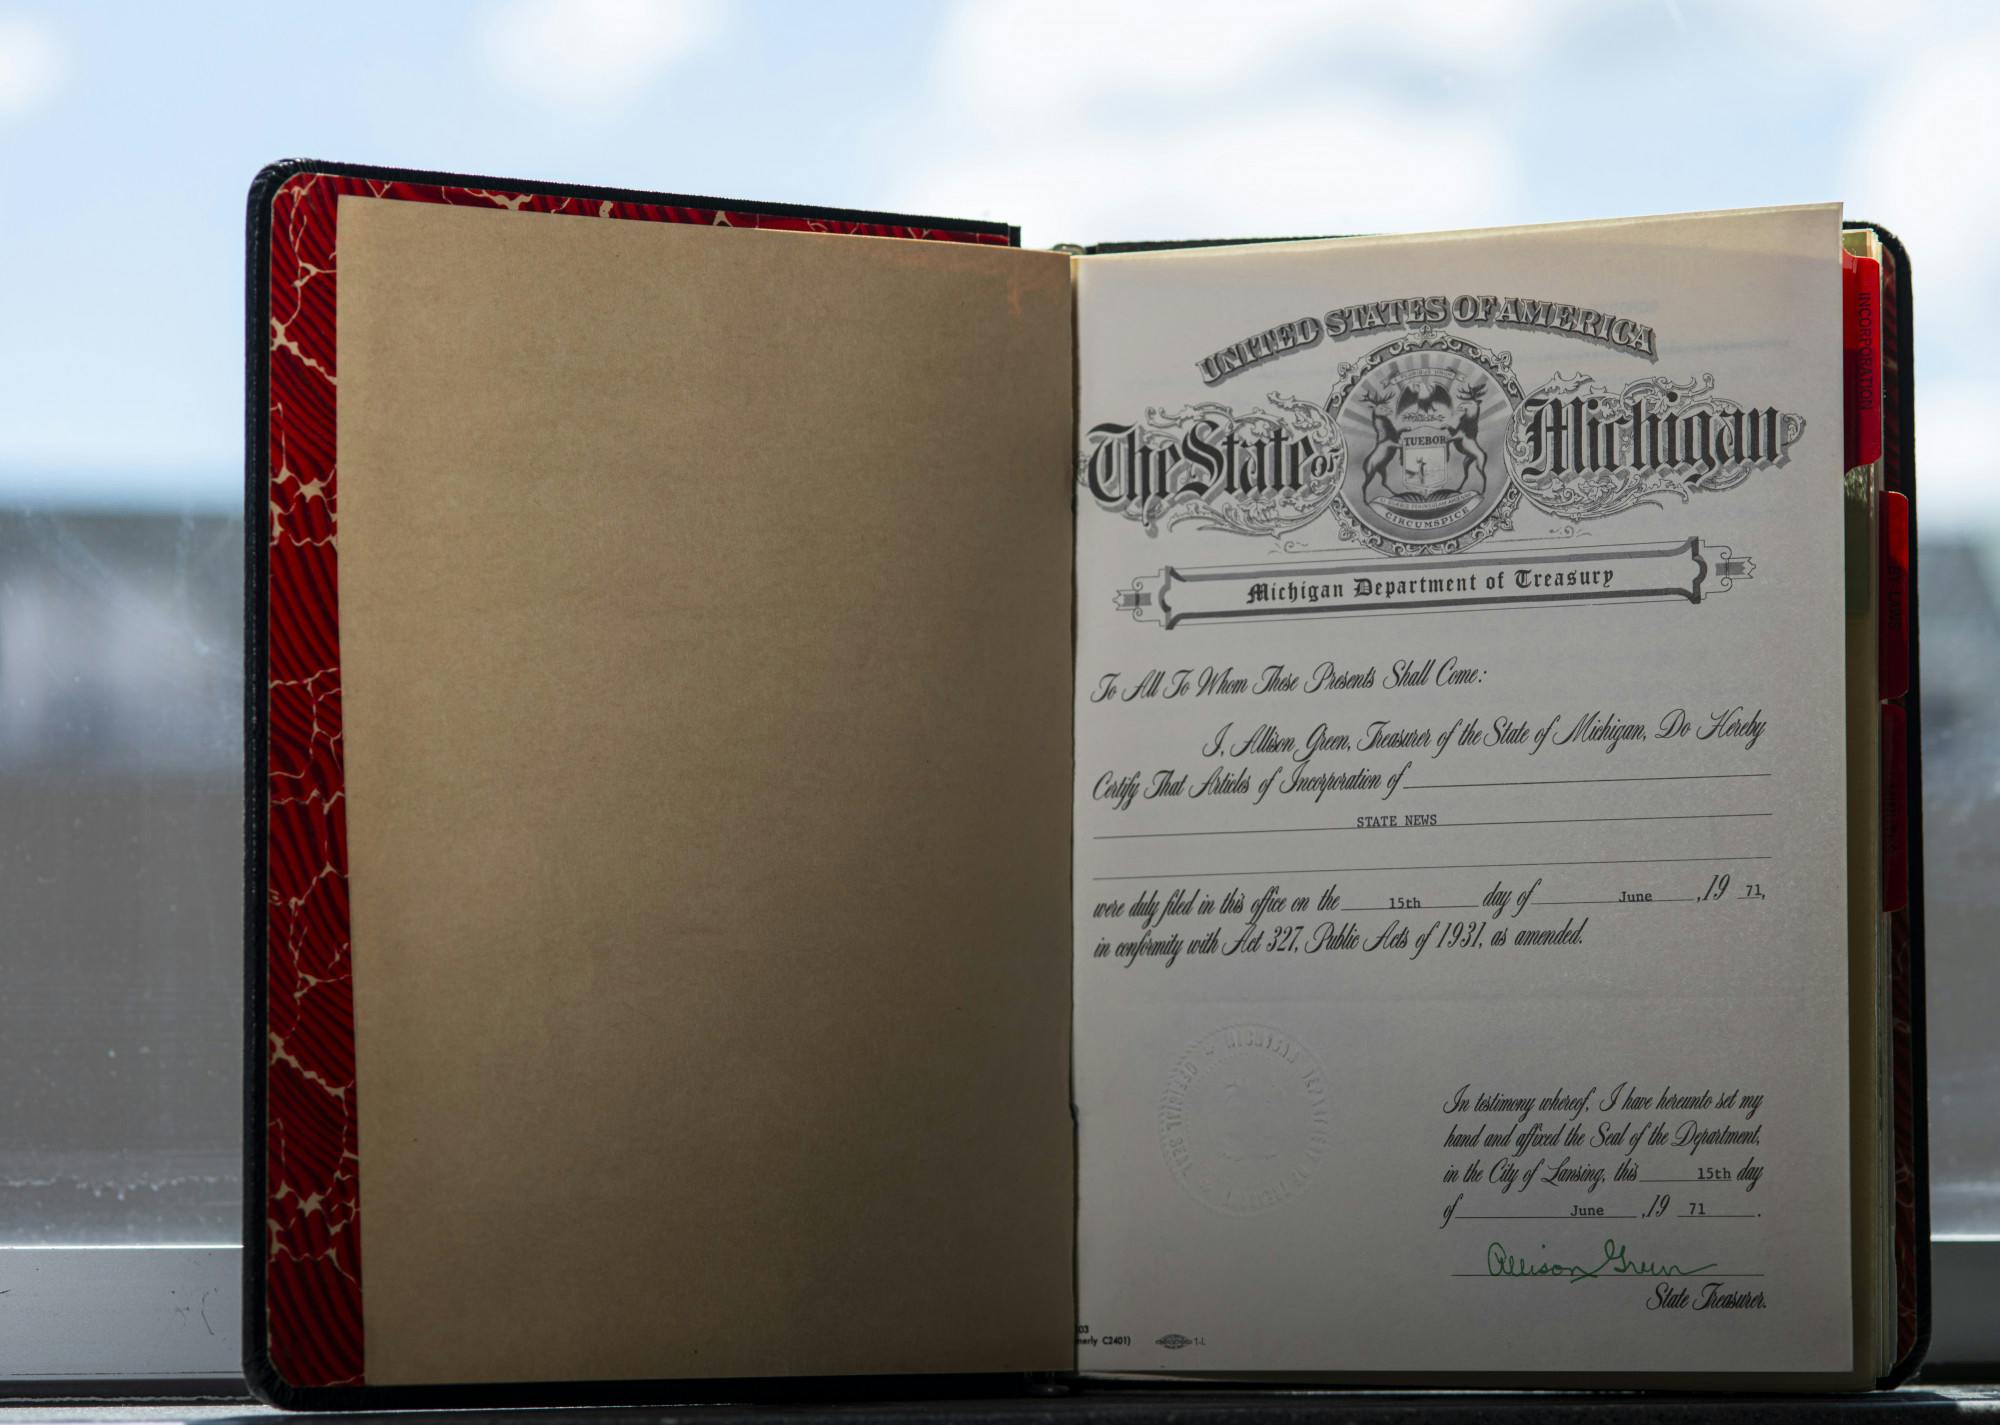 UNITED STATES OF AMERICA
The State of Michigan
TUEBOR
CIRCUMSPICE
Michigan Department of Treasury
To All To Whom These Presents Shall Come:
I, Allison Green, Treasurer of the State of Michigan, Do Hereby
Certify That Articles of Incorporation of
STATE NEWS
were duly filed in this office on the 15th day of June, 19 71,
in conformity with Act 327, Public Acts of 1931, as amended.
In testimony whereof, I have hereunto set my
hand and affixed the Seal of the Department,
in the City of Lansing, this 15th day
of June, 19 71.
Allison Green
State Treasurer.
03
merly C2401)
1-L
INCORPORATION
BY-LAWS